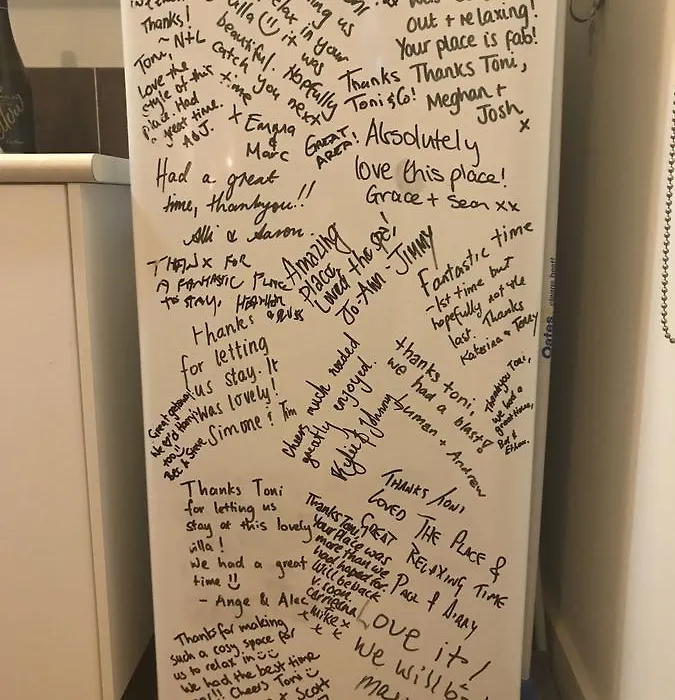 Thanks!
~ N+L
ing us
villa
relax in your
it was
beautiful. Hopefully
catch you next
time
x Emma
&
Marc
Toni,
Love the
style of this
place. Had
a great time.
A & J.
out + relaxing!
Your place is fab!
Thanks Toni,
Meghan +
Josh
x
Thanks
Toni & Co!
GREAT
AREA!
Absolutely
love this place!
Grace + Sean xx
Had a great
time, thankyou!!
Alli & Aaron.
THANX FOR
A FANTASTIC PLACE
TO STAY, HEATHER
& RUSS
Amazing
place
Loved the spa!
Jo-Ann - Jimmy
Fantastic time
-1st time but
hopefully not the
last. Thanks
Katerina & Terry
Oates
Thanks
for letting
us stay. It
was lovely!
Simone & Tim
Great getaway!
too!!
Bec & Steve
Cheers much needed
greatly enjoyed.
Kylie & Johnny
thanks toni,
we had a blast!
+ Andrew
Thankyou Toni,
we had a
great time,
Thanks Toni
for letting us
stay at this lovely
villa!
we had a great
time
- Ange & Alec
THANKS TONI
LOVED THE PLACE &
GREAT RELAXING TIME
Thanks Toni,
Your place was
more than we
had hoped for.
Will be back
v. soon
Mike x
x x
Love it!
we will be
Thanks for making
such a cosy space for
us to relax in
we had the best time
!!! Cheers Toni
+ Scott